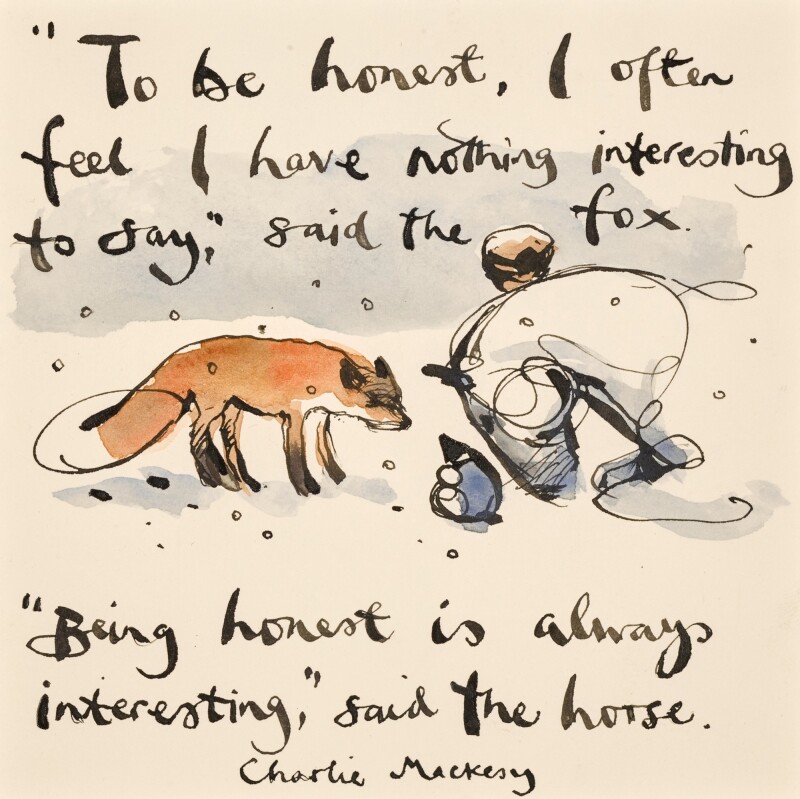 "To be honest, I often
feel I have nothing interesting
to say," said the fox.
"Being honest is always
interesting," said the horse.
Charlie Mackesy